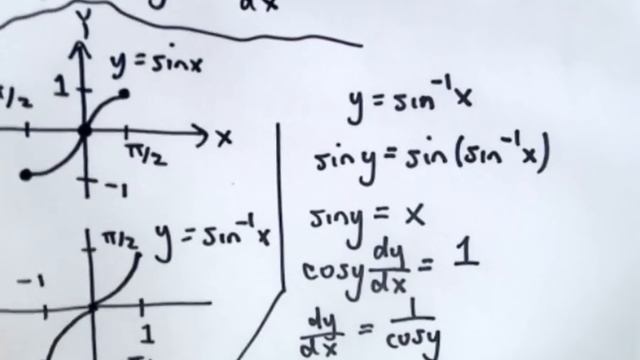 dx
y
y = sinx
1
π/2
x
π/2
-1
y = sin⁻¹x
π/2
-1
1
y = sin⁻¹x
siny = sin(sin⁻¹x)
siny = x
cosy dy/dx = 1
dy/dx = 1/cosy